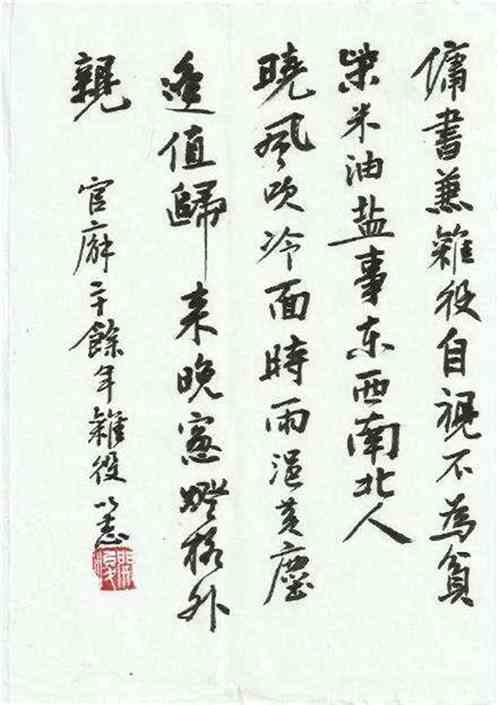 傭書兼雜役自視不為貧
柴米油盐事东西南北人
曉風吹冷面時雨浥黄塵
逢值歸来晚窓燈格外
親
官廨二十餘年雜役以志